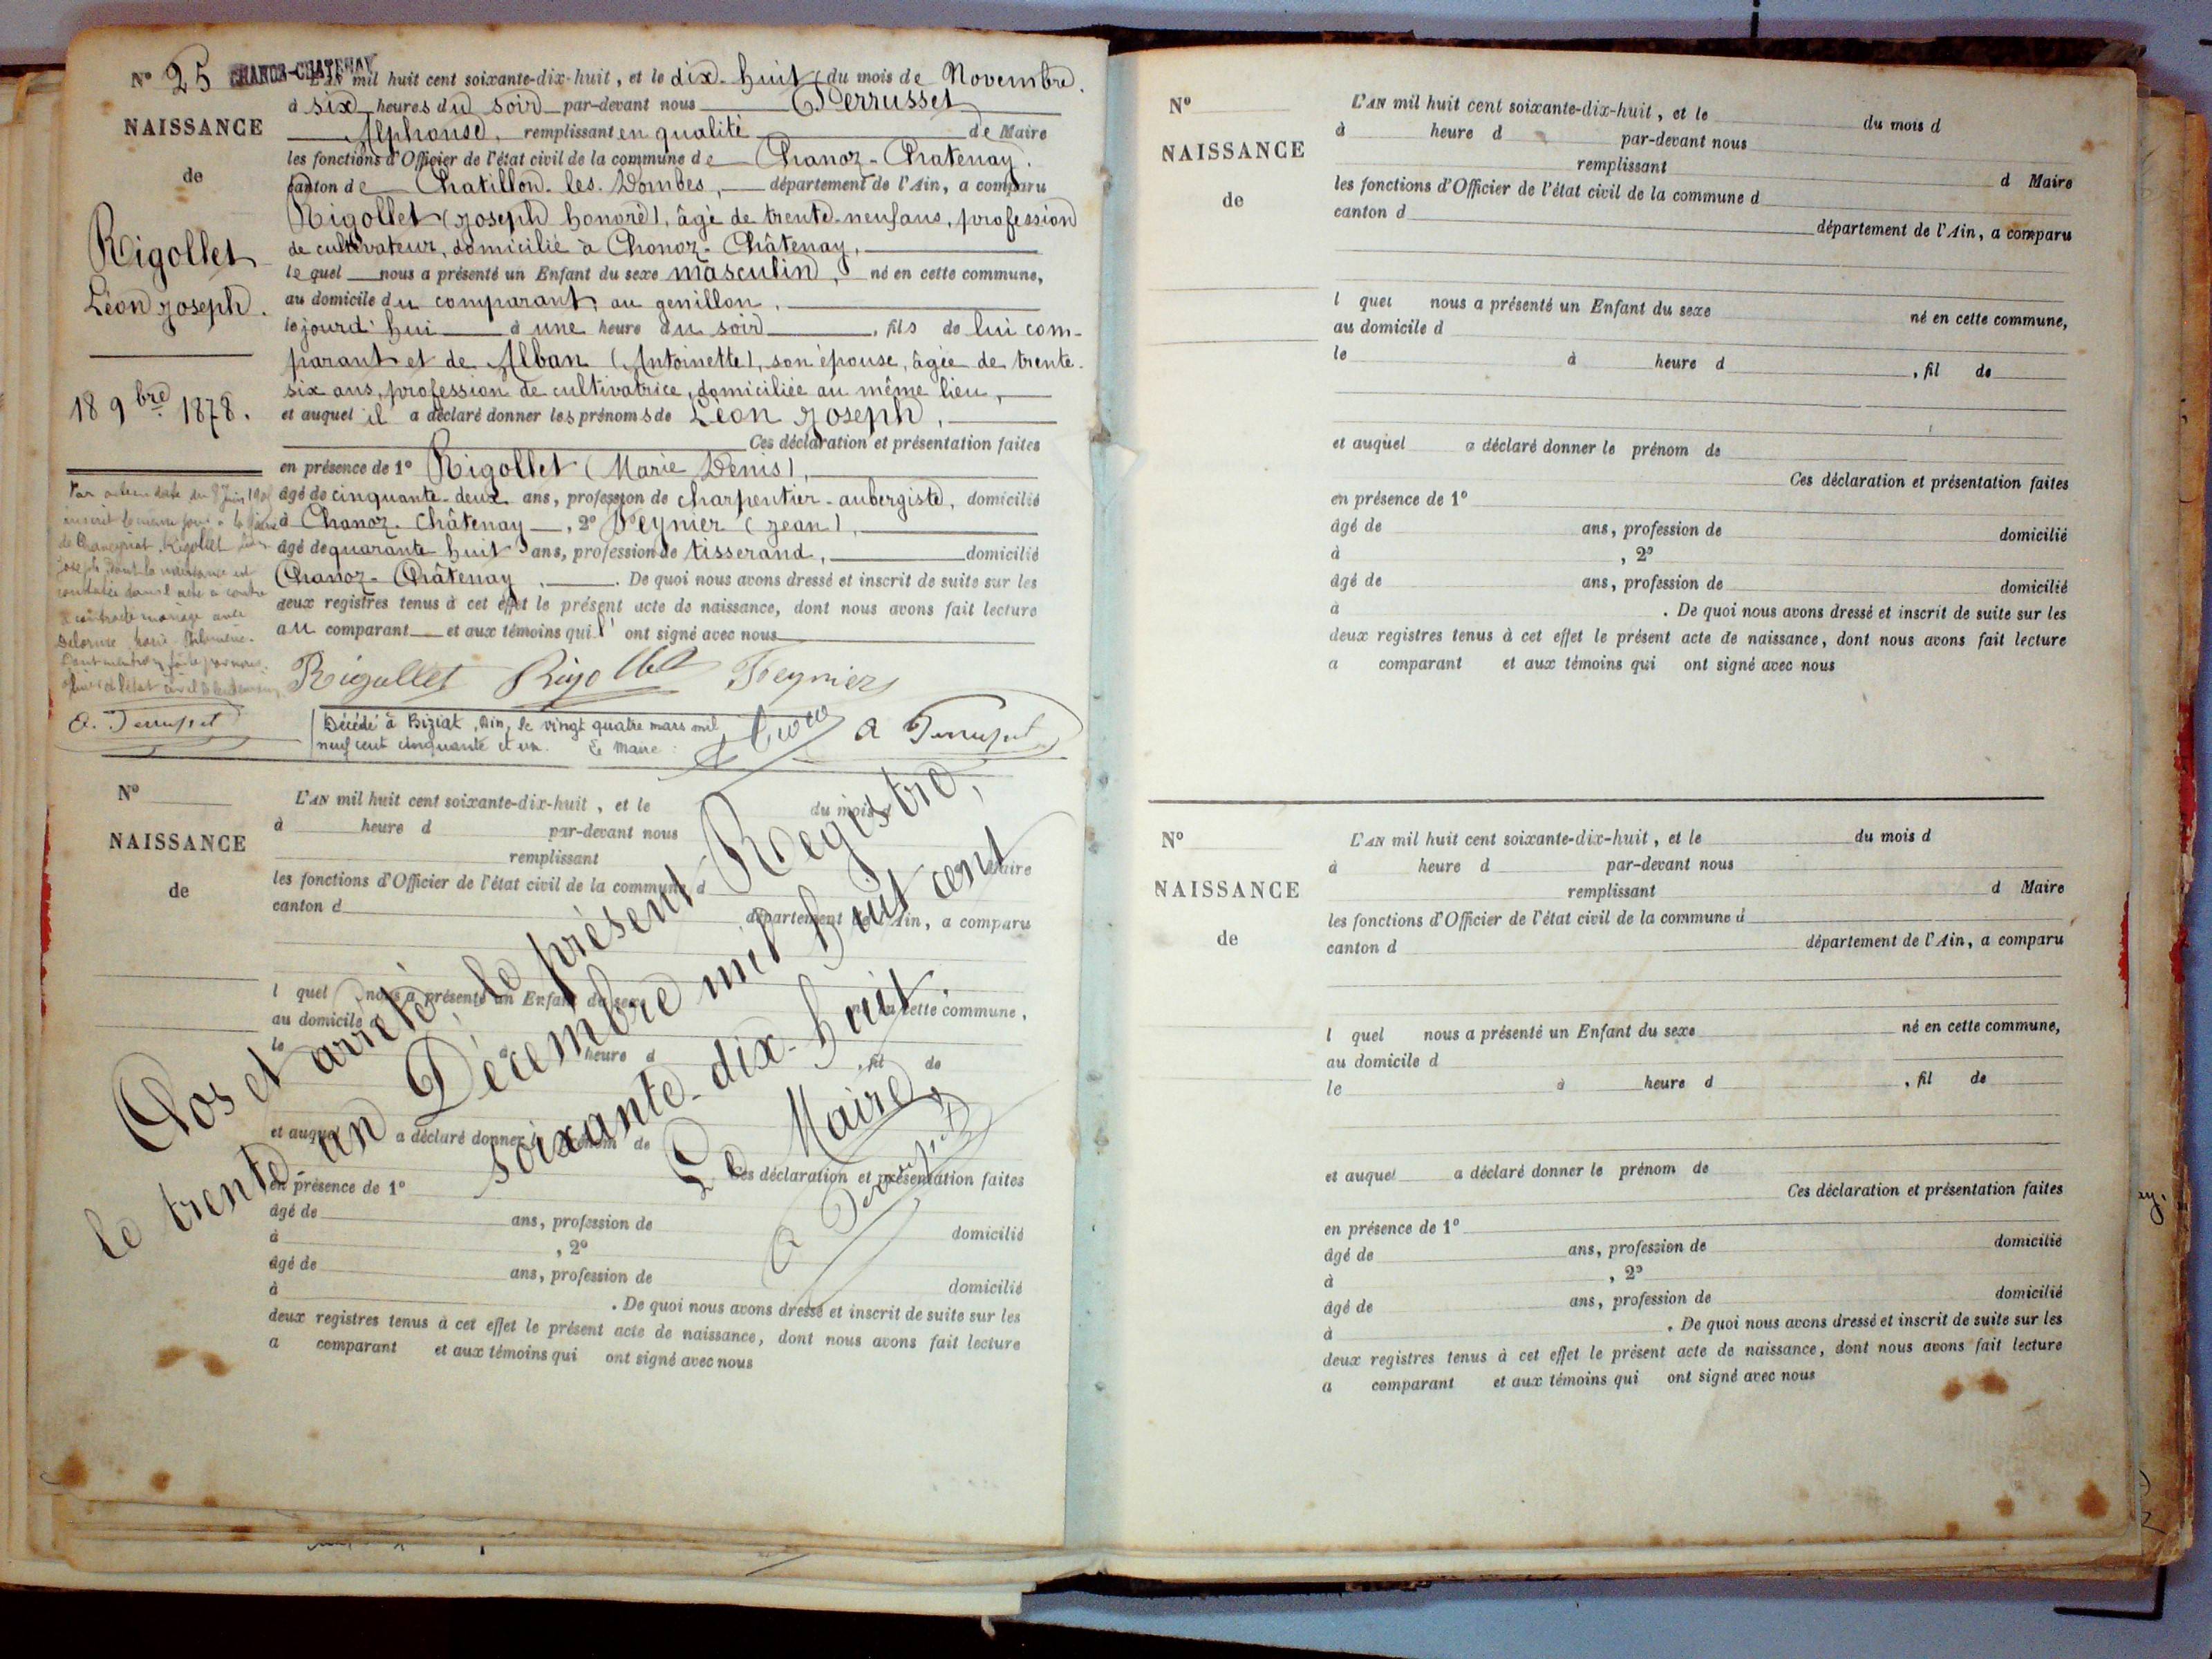 N° 25 CHANOZ-CHATENAY
NAISSANCE
de
Rigollet
Léon Joseph.
18 9bre 1878.
L'AN mil huit cent soixante-dix-huit, et le dix-huit du mois de Novembre.
à six heures du soir par-devant nous Perrusset
Alphonse, remplissant en qualité de Maire
les fonctions d'Officier de l'état civil de la commune de Chanoz-Chatenay.
canton de Chatillon-les-Dombes, département de l'Ain, a comparu
Rigollet (Joseph honoré), âgé de trente-neuf ans, profession
de cultivateur, domicilié à Chonoz-Châtenay,
lequel nous a présenté un Enfant du sexe masculin, né en cette commune,
au domicile du comparant, au genillon,
lejourd'hui à une heure du soir, fils de lui com-
parant et de Alban (Antoinette), son épouse, âgée de trente-
six ans, profession de cultivatrice, domiciliée au même lieu,
et auquel il a déclaré donner les prénoms de Léon Joseph,
Ces déclaration et présentation faites
en présence de 1° Rigollet (Marie Denis),
âgé de cinquante-deux ans, profession de charpentier-aubergiste, domicilié
à Chanoz-Châtenay, 2° Feynier (Jean),
âgé de quarante huit ans, profession de tisserand, domicilié
Chanoz-Châtenay. De quoi nous avons dressé et inscrit de suite sur les
deux registres tenus à cet effet le présent acte de naissance, dont nous avons fait lecture
au comparant et aux témoins qui l' ont signé avec nous
Rigollet Rigollet Feyniers
A Perrusset
Par acte en date du 8 Juin
inscrit le même jour à la
de Chaveyriat, Rigollet Léon
Joseph, dont la naissance est
constatée dans l'acte ci contre
a contracté mariage avec
Delorme Marie Philomène.
Dont mention faite par nous
officier de l'état civil
A. Perrusset
Décédé à Biziat, Ain, le vingt quatre mars mil
neuf cent cinquante et un. Le Maire :
N°
NAISSANCE
de
L'AN mil huit cent soixante-dix-huit, et le du mois d
à heure d par-devant nous
remplissant Maire
les fonctions d'Officier de l'état civil de la commune d
canton d département de l'Ain, a comparu
l quel nous a présenté un Enfant du sexe né en cette commune,
au domicile d
le à heure d , fil de
et auquel a déclaré donner le prénom de
Ces déclaration et présentation faites
en présence de 1°
âgé de ans, profession de domicilié
à , 2°
âgé de ans, profession de domicilié
à . De quoi nous avons dressé et inscrit de suite sur les
deux registres tenus à cet effet le présent acte de naissance, dont nous avons fait lecture
a comparant et aux témoins qui ont signé avec nous
Clos et arrêté, le présent Registre,
le trente-un Décembre mil huit cent
soixante-dix-huit.
Le Maire,
A Perrusset
N°
NAISSANCE
de
L'AN mil huit cent soixante-dix-huit, et le du mois d
à heure d par-devant nous
remplissant d Maire
les fonctions d'Officier de l'état civil de la commune d
canton d département de l'Ain, a comparu
l quel nous a présenté un Enfant du sexe né en cette commune,
au domicile d
le à heure d , fil de
et auquel a déclaré donner le prénom de
Ces déclaration et présentation faites
en présence de 1°
âgé de ans, profession de domicilié
à , 2°
âgé de ans, profession de domicilié
à . De quoi nous avons dressé et inscrit de suite sur les
deux registres tenus à cet effet le présent acte de naissance, dont nous avons fait lecture
a comparant et aux témoins qui ont signé avec nous
N°
NAISSANCE
de
L'AN mil huit cent soixante-dix-huit, et le du mois d
à heure d par-devant nous
remplissant d Maire
les fonctions d'Officier de l'état civil de la commune d
canton d département de l'Ain, a comparu
l quel nous a présenté un Enfant du sexe né en cette commune,
au domicile d
le à heure d , fil de
et auquel a déclaré donner le prénom de
Ces déclaration et présentation faites
en présence de 1°
âgé de ans, profession de domicilié
à , 2°
âgé de ans, profession de domicilié
à . De quoi nous avons dressé et inscrit de suite sur les
deux registres tenus à cet effet le présent acte de naissance, dont nous avons fait lecture
a comparant et aux témoins qui ont signé avec nous